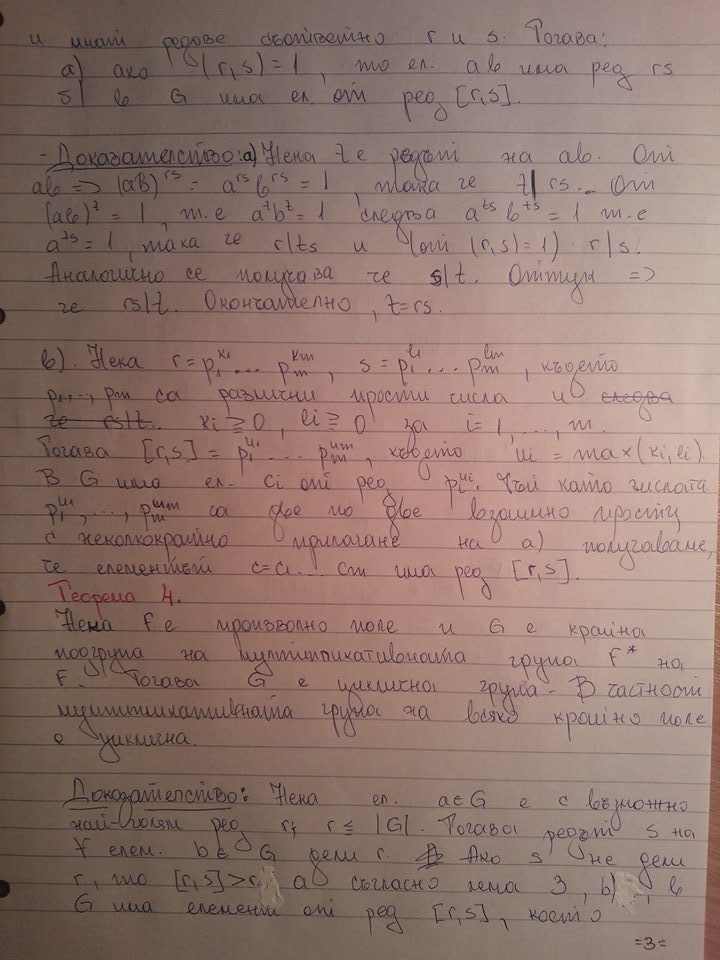 и имат редове съответно r и s. Тогава:
а) ако (r,s)=1, то ел. ab има ред rs
б) в G има ел. от ред [r,s].
- Доказателство: а) Нека t е редът на ab. От
ab => (ab)^rs = a^rs b^rs = 1, така че t | rs. От
(ab)^t = 1, т.е a^t b^t = 1 следва a^ts b^ts = 1 т.е
a^ts = 1, така че r|ts и (от (r,s)=1) r|s.
Аналогично се получава че s|t. Оттук =>
че rs|t. Окончателно, t=rs.
b). Нека r = p_1^k1 ... p_m^km, s = p_1^l1 ... p_m^lm, където
p_1,..., p_m са различни прости числа и следва
че rs|t. ki ≧ 0, li ≧ 0 за i=1,..., m.
Тогава [r,s] = p_1^u1 ... p_m^um, където ui = max(ki, li).
В G има ел. ci от ред p_i^ui. Тъй като числата
p_1^u1,..., p_m^um са две по две взаимно прости
с неколкократно прилагане на а) получаваме,
че елементът c=c1 ... cm има ред [r,s].
Теорема 4.
Нека F е произволно поле и G е крайна
подгрупа на мултипликативната група F* на
F. Тогава G е циклична група - В частност
мултипликативната група на всяко крайно поле
е циклична.
Доказателство: Нека ел. a∈G е с възможно
най-голям ред r, r ≤ |G|. Тогава редът s на
∀ елем. b ∈ G дели r. Ако s не дели
r, то [r,s]>r, а съгласно лема 3, b), в
G има елемент от ред [r,s], което
=3=